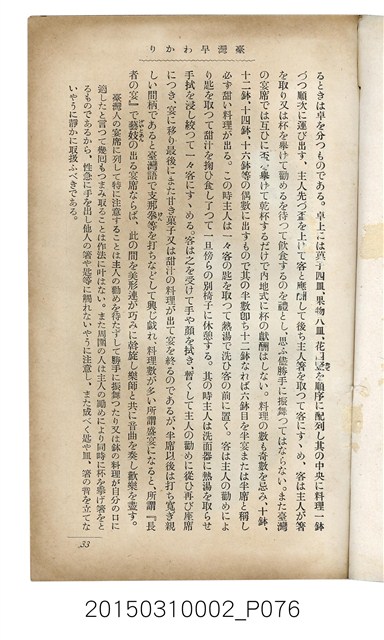 臺灣早わかり
るときは卓を分つものである。卓上には菓子四皿、果物八皿、花
を順序に配列し其の中央に料理一鉢
づつ順次に運び出す、主人先づ盃を上げて客と應酬して後ち主人箸を取つて客にすゝめ、客は主人が箸
を取り又は杯を擧げて勸めるを待つて飮食するのを禮とし、思ふ儘勝手に振舞つてはならない。また臺灣
の宴席では互ひに盃を擧げて乾杯するだけで內地式に杯の獻酬はしない。料理の數も奇數を忌み、十鉢、
十二鉢、十四鉢、十六鉢等の偶數に出すもので其の半數卽ち十二鉢なれば六鉢目を半宴または半席と稱し
必ず甜い料理が出る。この時主人は一々客の匙を取つて熱湯で洗ひ客の前に置く。客は主人の勸めによ
り匙を取つて甜汁を掬ひ食し了つて一旦傍らの別椅子に休憩する、其の時主人は洗面器に熱湯を取らせ
手拭を浸し絞つて一々客にすゝめる。客は之を受けて手や顏を拭き、暫くして主人の勸めに從ひ再び座席
につき、宴に移り最後にまた甘き菓子又は甜汁の料理が出て宴を終るのであるが、半席以後は打ち寬ぎ親
しい間柄であると臺灣語で支那拳等を打ちなどして興じ戲れ、料理數が多い所謂盛宴になると、所謂『長
者の宴』で藝妓の出る宴席ならば、此の間を美形達が巧みに斡旋し樂師と共に音曲を奏し歡樂を盡す。
臺灣人の宴席に列して特に注意することは主人の勸めを待たずして勝手に振舞つたり又は鉢の料理が自分の口に
適したと言つて幾回もつまみ取ることは作法に叶はない。また周圍の人は主人の勸めにより同時に杯を擧げ箸をと
るものであるから、性急に手を出し他人の箸や匙等に觸れないやうに注意し、また成べく匙や皿、箸の音を立てな
いやうに靜かに取扱ふべきである。
33
20150310002_P076